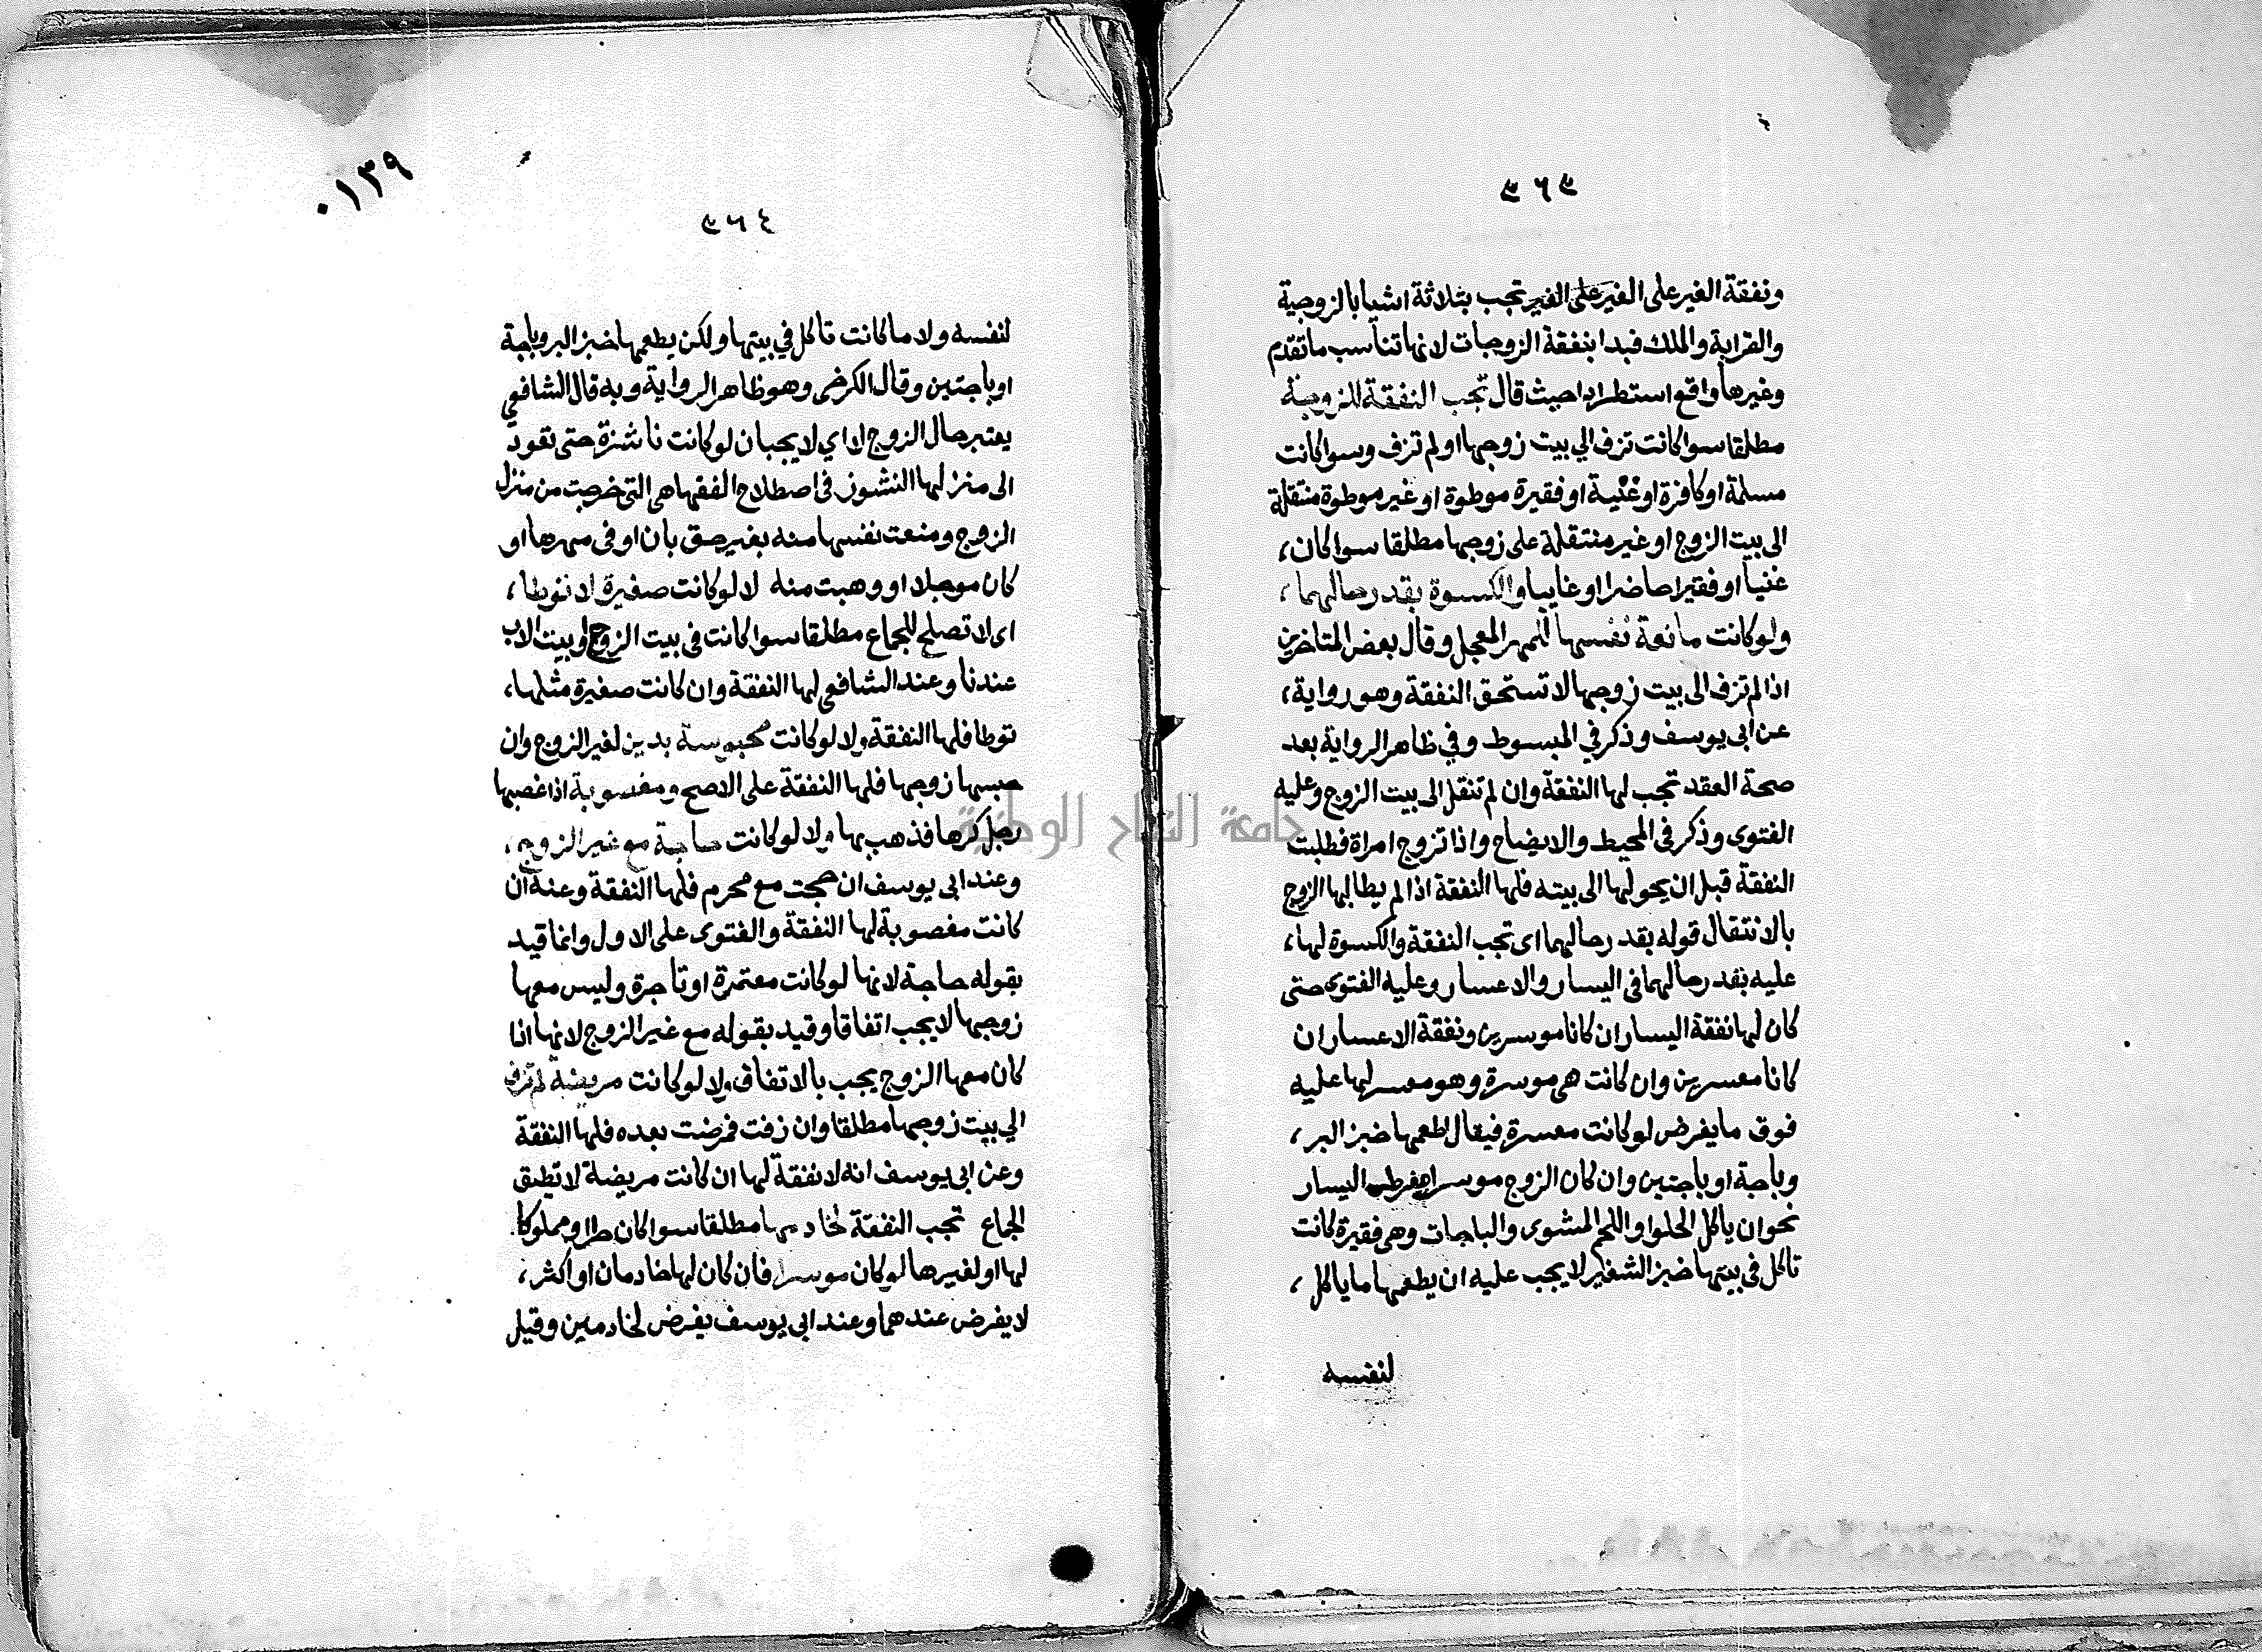 ٣٦٣
ونفقة الغير على الغير على الغير تجب بثلاثة اشيا بالزوجية
والقرابة والملك فبدا بنفقة الزوجات لانها تناسب ما تقدم
وغيرها واقع استطرادا حيث قال تجب النفقة للزوجة
مطلقا سوا كانت تزف الي بيت زوجها او لم تزف وسوا كانت
مسلمة او كافرة او غنية او فقيرة موطوة او غير موطوة منتقلة
الى بيت الزوج او غير منتقلة على زوجها مطلقا سوا كان،
غنيا او فقيرا حاضرا او غايبا والكسوة بقدر حالهما،
ولو كانت مانعة نفسها للمهر المعجل وقال بعض المتاخرين
اذا لم تزف الى بيت زوجها لا تستحق النفقة وهو رواية،
عن ابى يوسف وذكر في المبسوط وفي ظاهر الرواية بعد
صحة العقد تجب لها النفقة وان لم تنقل الى بيت الزوج وعليه
الفتوى وذكر فى المحيط والايضاح واذا تزوج امراة فطلبت
النفقة قبل ان يحولها الى بيته فلها النفقة اذا لم يطالبها الزوج
بالانتقال قوله بقدر حالهما اى تجب النفقة والكسوة لها،
عليه بقدر حالهما فى اليسار والاعسار وعليه الفتوى حتى
كان لها نفقة اليسار ان كانا موسرين ونفقة الاعسار ان
كانا معسرين وان كانت هى موسرة وهو معسر لها عليه
فوق ما يفرض لو كانت معسرة فيقال اطعمها خبز البر،
وباجة او باجتين وان كان الزوج موسرا مفرط اليسار
نحو ان ياكل الحلوا واللحم المشوى والباجات وهى فقيرة كانت
تاكل فى بيتها خبز الشعير لا يجب عليه ان يطعمها ما ياكل،
لنفسه
٠١٣٩
٣٦٤
لنفسه ولا ما كانت تاكل في بيتها ولكن يطعمها خبز البر وباجة
او باجتين وقال الكرخى وهو ظاهر الرواية وبه قال الشافعي
يعتبر حال الزوج لا اي لا يجبان لو كانت ناشزة حتى تعود
الى منزلها النشوز فى اصطلاح الفقها هى التى خرجت من منزل
الزوج ومنعت نفسها منه بغير حق بان اوفى مهرها او
كان موجلا او وهبت منه لا لو كانت صغيرة لا توطا،
اى لا تصلح للجماع مطلقا سوا كانت فى بيت الزوج او بيت الاب
عندنا وعند الشافعي لها النفقة وان كانت صغيرة مثلها،
توطا فلها النفقة ولا لو كانت محبوسة بدين لغير الزوج وان
حبسها زوجها فلها النفقة على الاصح ومغصوبة اذا غصبها
رجل كرها فذهب بها ولا لو كانت حاجة مع غير الزوج،
وعند ابى يوسف ان حجت مع محرم فلها النفقة وعنه ان
كانت مغصوبة لها النفقة والفتوى على الاول وانما قيد
بقوله حاجة لانها لو كانت معتمرة او تاجرة وليس معها
زوجها لا يجب اتفاقا وقيد بقوله مع غير الزوج لانها اذا
كان معها الزوج يجب بالاتفاق ولا لو كانت مريضة لم تزف
الي بيت زوجها مطلقا وان زفت فمرضت بعده فلها النفقة
وعن ابى يوسف انه لا نفقة لها ان كانت مريضة لا تطيق
الجماع تجب النفقة لخادمها مطلقا سوا كان حرا او مملوكا
لها او لغيرها لو كان موسرا فان كان لها خادمان او اكثر،
لا يفرض عندهما وعند ابى يوسف يفرض لخادمين وقيل
جامعة النجاح الوطنية